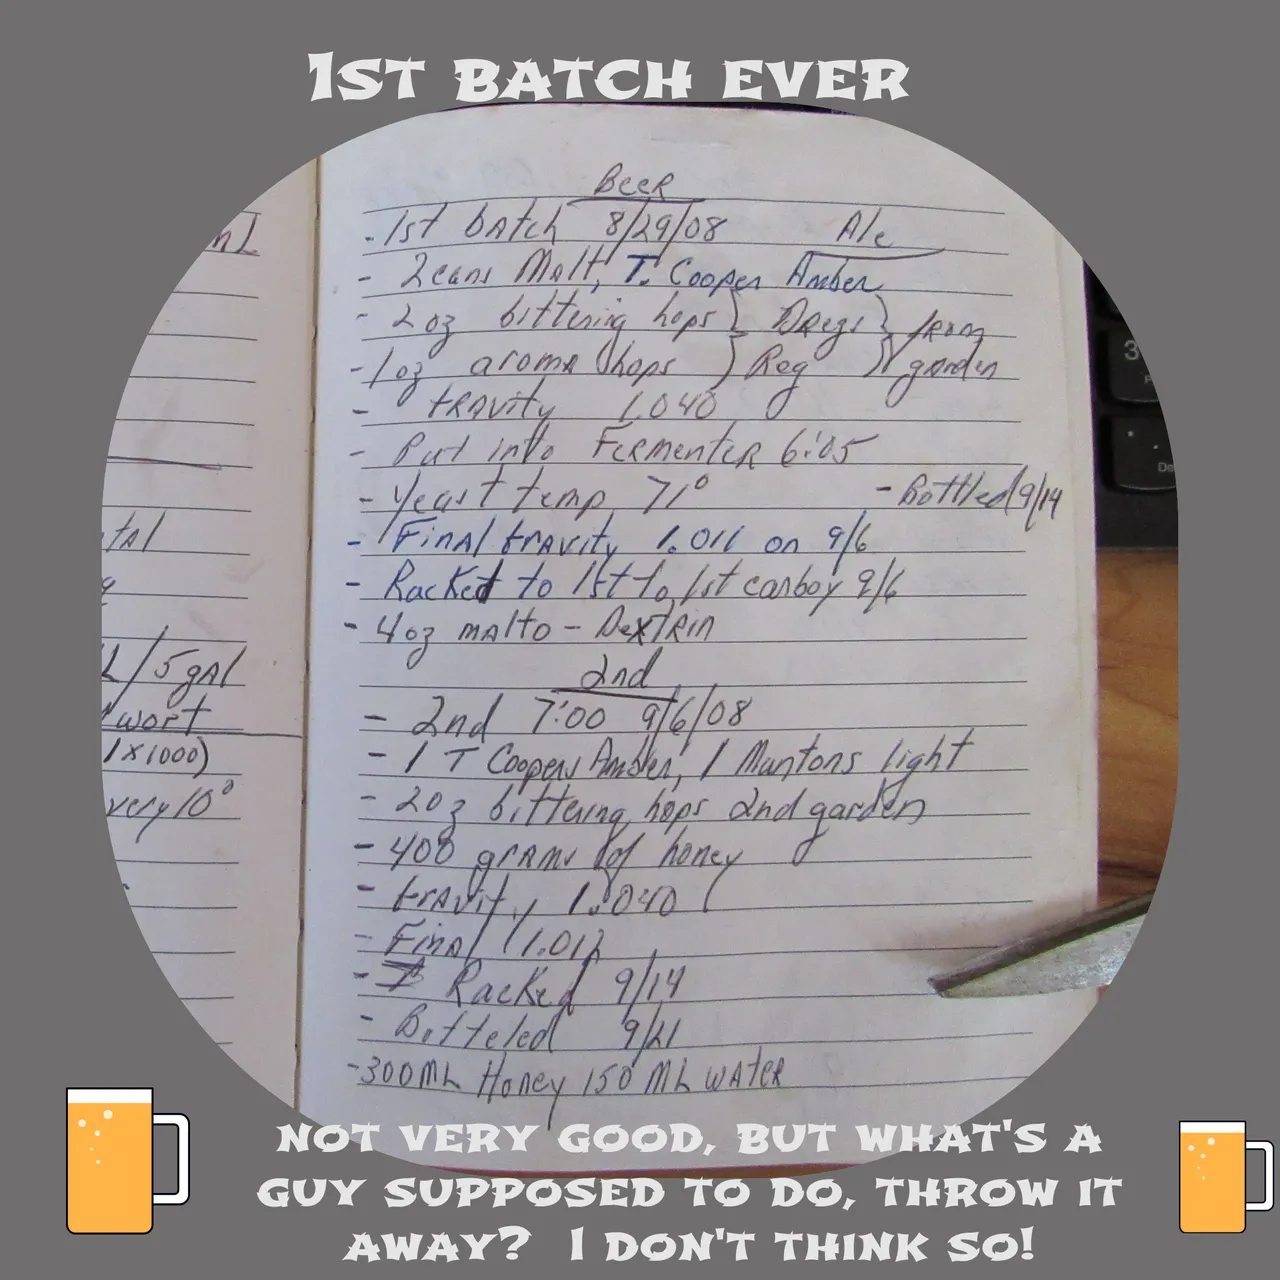 1ST BATCH EVER
BeeR
- 1st batch 8/29/08 Ale
- 2 cans Malt, T. Cooper Amber
- 2 oz bittering hops } } from
- 1 oz aroma hops } Reg } garden
- GRAvity 1.040
- Put into FeRmenteR 6:05
- Yeast temp 71° - Bottled 9/14
- Final GRAvity 1.011 on 9/6
- Racked to 1st to 1st carboy 9/6
- 4oz mAlto - DextRin
2nd
- 2nd 7:00 9/6/08
- 1 T Coopers Amber, 1 Muntons light
- 2oz bittering hops 2nd garden
- 400 grams of honey
- GRAvity 1.040
- Final 1.012
- Racked 9/14
- Botteled 9/21
- 300 ML Honey 150 ML WAteR
tAl
L/5gAl
wort
1x1000)
very 10°
NOT VERY GOOD, BUT WHAT'S A
GUY SUPPOSED TO DO, THROW IT
AWAY? I DON'T THINK SO!